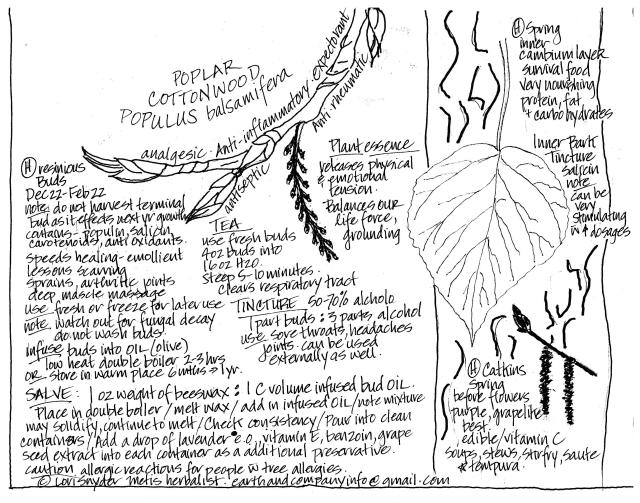 POPLAR
COTTONWOOD
POPULUS balsamifera
analgesic · Anti-inflammatory · expectorant
Anti rheumatic
antiseptic
Ⓗ resinious
Buds
Dec 22 - Feb 22
note: do not harvest terminal
bud as it effects next yr growth
contains - populin, salicin,
carotenoids, anti oxidants.
speeds healing - emollient
lessons scarring
sprains, arthritic joints
deep muscle massage
use fresh or freeze for later use
note. watch out for fungal decay
do not wash buds.
infuse buds into OIL (olive)
low heat double boiler 2-3 hrs
OR store in warm place 6 mths → 1 yr.
TEA
use fresh buds
4oz buds into
16 oz H2O.
steep 5-10 minutes.
clears respiratory tract
TINCTURE 50-70% alcholo
1 part buds : 3 parts, alcohol
use sore throats, headaches
joints. can be used
externally as well.
Plant essence
releases physical
& emotional
tension.
Balances our
life force,
grounding
SALVE: 1 oz weight of beeswax : 1 C volume infused bud OIL.
Place in double boiler / melt wax / add in infused OIL / note mixture
may solidify, continue to melt / Check consistency / Pour into clean
containers / Add a drop of lavender e.o., vitamin E, benzoin, grape
seed extract into each container as a additional preservative.
caution allergic reactions for people w tree allergies.
© Lori Snyder metis herbalist. earthandcompanyinfo@gmail.com
Ⓗ Spring
inner
cambium layer
survival food
very nourishing
protein, fat,
+ carbohydrates
Inner Bark
Tincture
salicin
note
can be
very
stimulating
in ↑ dosages
Ⓗ Catkins
Spring
before flowers
purple, grapelike
best.
edible / vitamin C
soups, stews, stirfry, saute
& tempura.